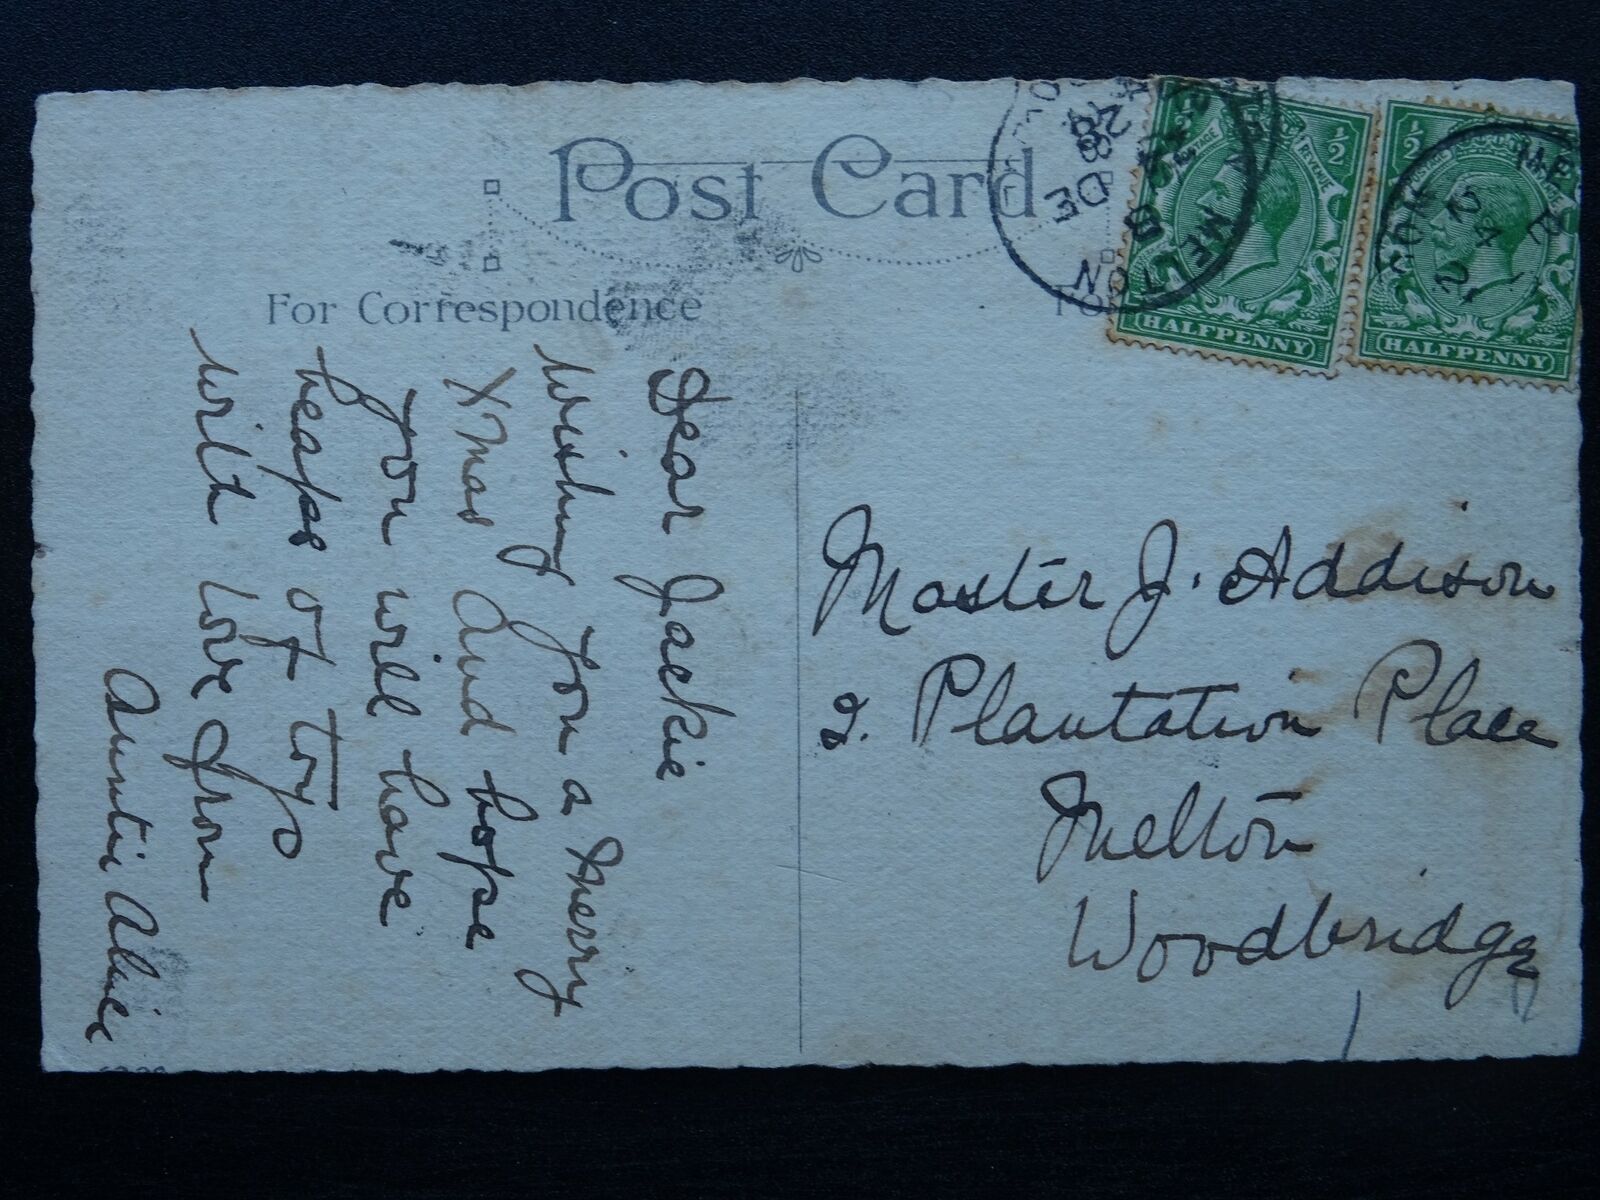 Post Card
For Correspondence
Dear Jackie
Wishing you a Merry
Xmas and hope
you will have
heaps of toys
with love from
Auntie Alice
Master J. Addison
2. Plantation Place
Melton
Woodbridge
MELTON
DE
28
HALFPENNY
½
½
POSTAGE
REVENUE
HALFPENNY
½
POSTAGE